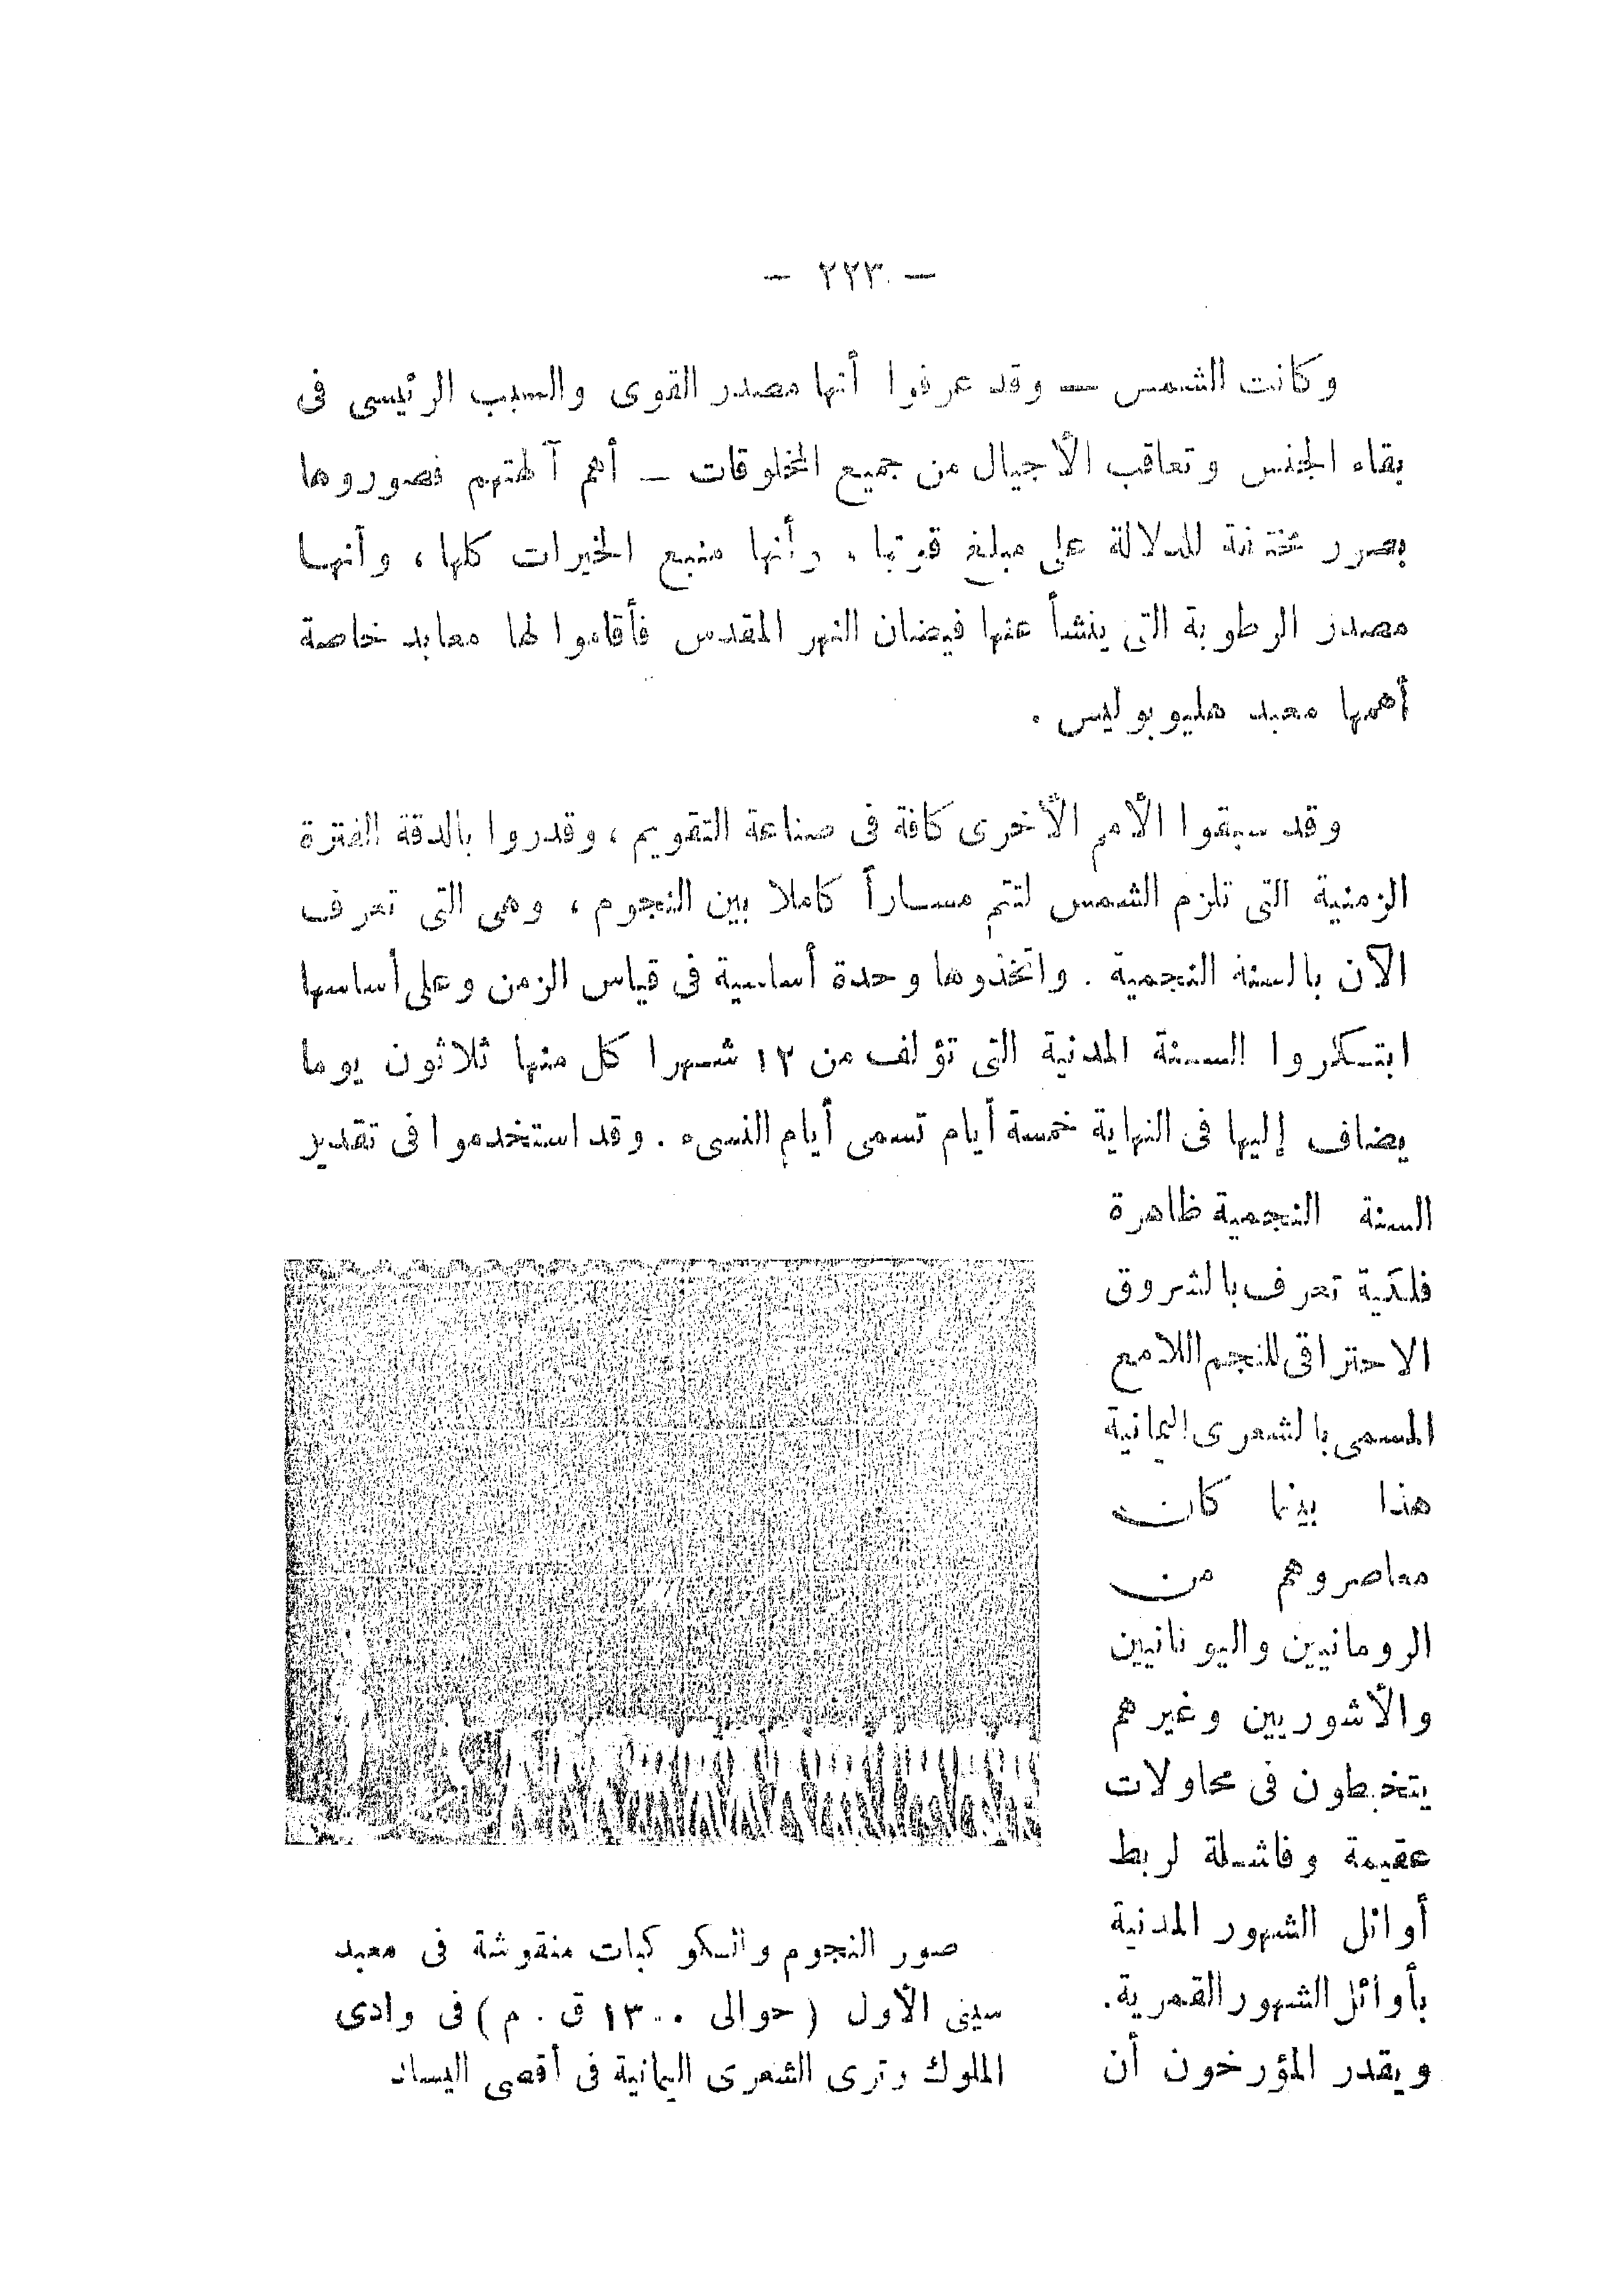 — ٢٢٣ —
وكانت الشمس — وقد عرفوا أنها مصدر القوى والسبب الرئيسى فى
بقاء الجنس وتعاقب الأجيال من جميع المخلوقات — أهم آلهتهم فصوروها
بصور مختلفة للدلالة على مبلغ قوتها، وأنها منبع الخيرات كلها، وأنها
مصدر الرطوبة التى ينشأ عنها فيضان النهر المقدس فأقاموا لها معابد خاصة
أهمها معبد هليوبوليس.
وقد سبقوا الأمم الأخرى كافة فى صناعة التقويم، وقدروا بالدقة الفترة
الزمنية التى تلزم الشمس لتتم مساراً كاملا بين النجوم، وهى التى تعرف
الآن بالسنة النجمية. واتخذوها وحدة أساسية فى قياس الزمن وعلى أساسها
ابتكروا السنة المدنية التى تؤلف من ١٢ شهرا كل منها ثلاثون يوما
يضاف إليها فى النهاية خمسة أيام تسمى أيام النسىء. وقد استخدموا فى تقدير
السنة النجمية ظاهرة
فلكية تعرف بالشروق
الاحتراقى للنجم اللامع
المسمى بالشعرى اليمانية
هذا بينما كان
معاصروهم من
الرومانيين واليونانيين
والأشوريين وغيرهم
يتخبطون فى محاولات
عقيمة وفاشلة لربط
أوائل الشهور المدنية
بأوائل الشهور القمرية.
ويقدر المؤرخون أن
صور النجوم والكوكبات منقوشة فى معبد
سيتى الأول (حوالى ١٣٠٠ ق. م) فى وادى
الملوك وترى الشعرى اليمانية فى أقصى اليسار